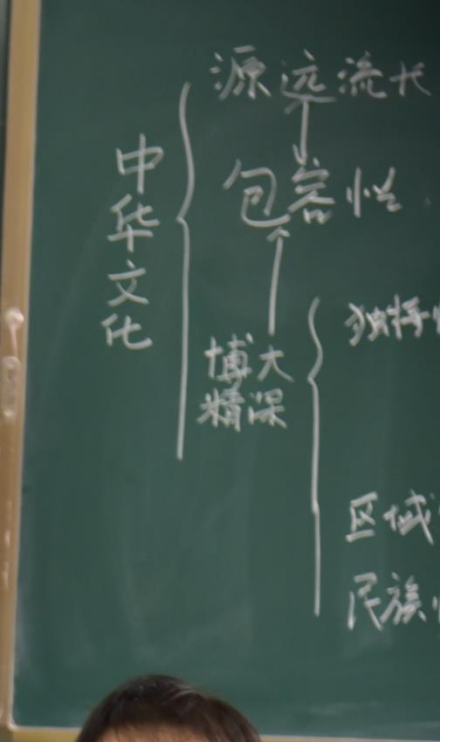 中华文化
源远流长
包容性
博大
精深
独特
区域
民族